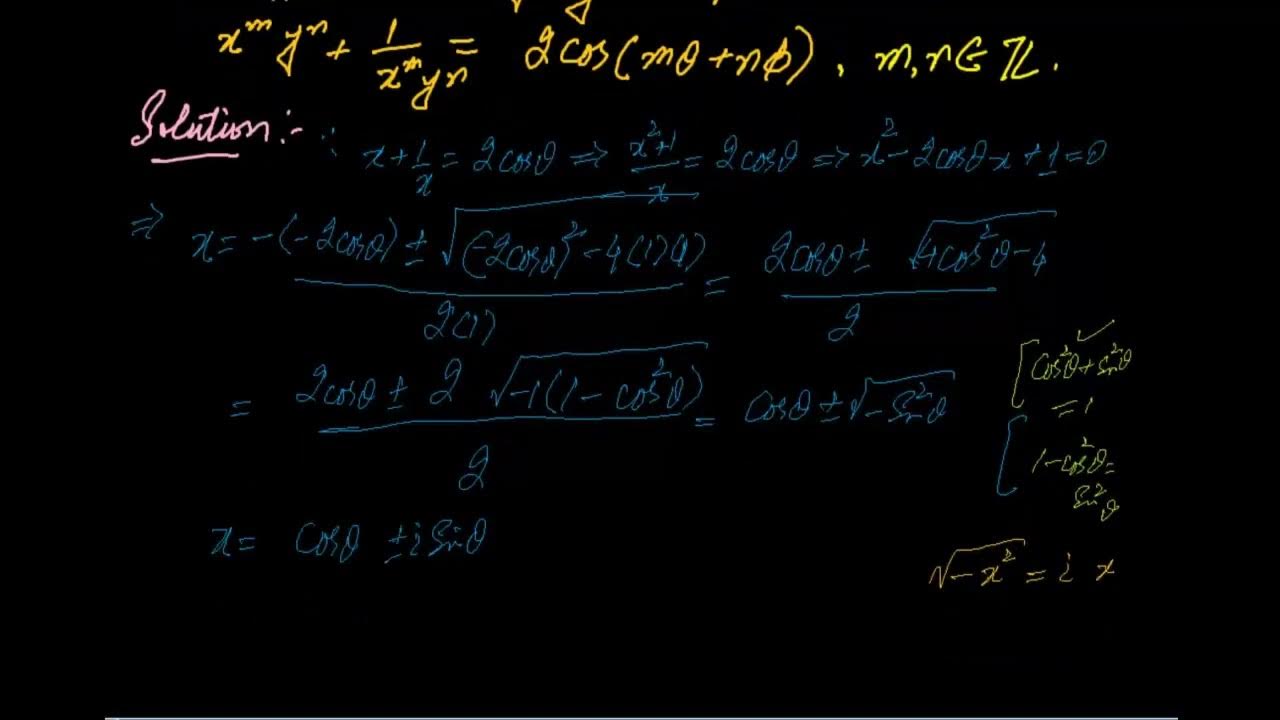 x^m y^n + 1/(x^m y^n) = 2cos(mθ+nϕ), m,n∈ℤ.
Solution:-
∵ x+1/x = 2cosθ ⇒ (x²+1)/x = 2cosθ ⇒ x²-2cosθ·x+1=0
⇒ x = (-(-2cosθ) ± √((-2cosθ)²-4(1)(1)))/(2(1)) = (2cosθ ± √(4cos²θ-4))/2
= (2cosθ ± 2√(-1(1-cos²θ)))/2 = cosθ ± √(-sin²θ)
[cos²θ+sin²θ
=1
[1-cos²θ=
sin²θ
x = cosθ ± i sinθ
√(-x²) = i x